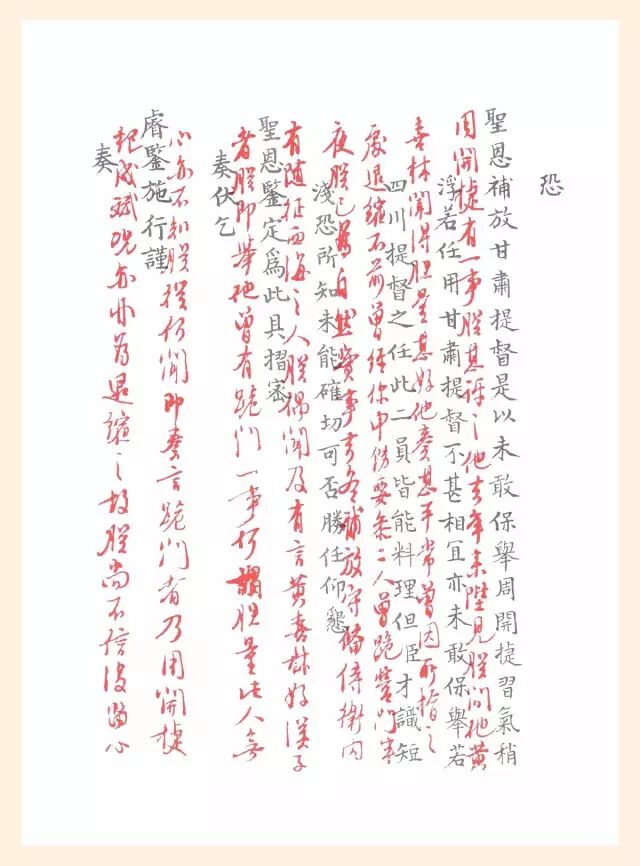 恐
聖恩補放甘肅提督是以未敢保舉周開捷習氣稍
浮若任用甘肅提督不甚相宜亦未敢保舉若
四川提督之任此二員皆能料理但臣才識短
淺恐所知未能確切可否勝任仰懇
聖恩鑒定為此具摺密
奏伏乞
睿鑒施行謹
奏
周開捷有一事朕甚訝之他去年來陛見朕問他黃
喜林聞得胆量甚好他奏甚平常曾因所指之
處退縮不前曾経你中要二人曾跪營門半
夜朕已為自然實事去冬補放守備侍衛內
有随征西海之人朕偶聞及有言黃喜林好漢子
者朕即舉他曾有跪門一事何謂胆量此人
心亦不知朕從何聞即奏言跪門者乃周開捷
斌亦非為退縮之故朕尚不信後留心